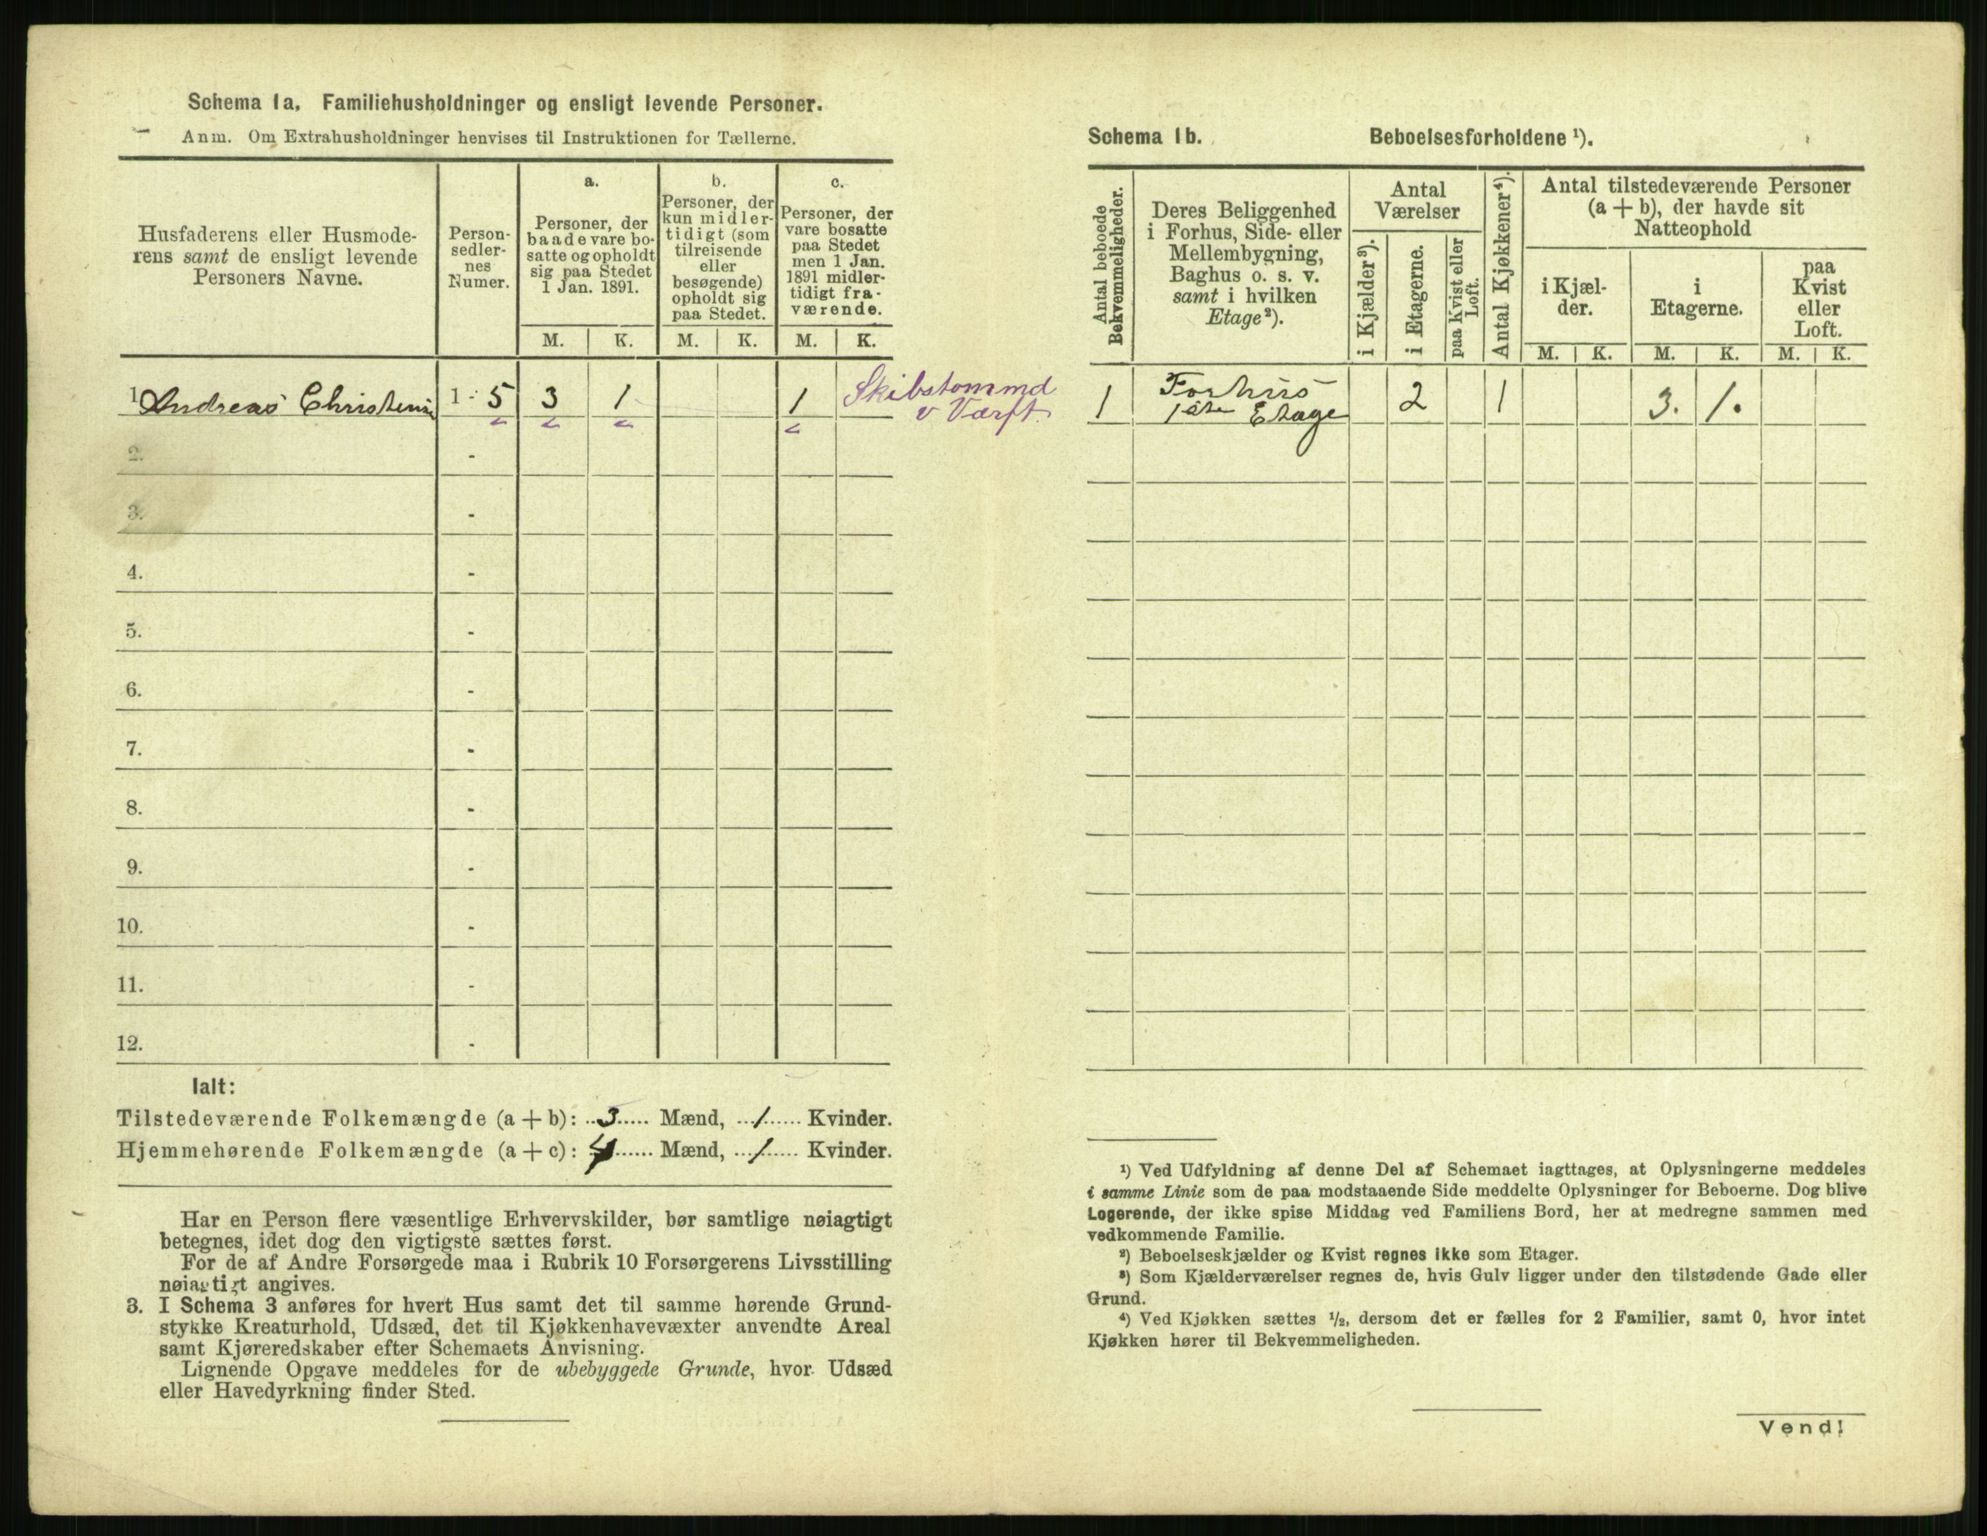 Schema 1a. Familiehusholdninger og ensligt levende Personer.
Anm. Om Extrahusholdninger henvises til Instruktionen for Tællerne.
Husfaderens eller Husmode-
rens samt de ensligt levende
Personers Navne.
Person-
sedler-
nes
Numer.
a.
Personer, der
baade vare bo-
satte og opholdt
sig paa Stedet
1 Jan. 1891.
b.
Personer, der
kun midler-
tidigt (som
tilreisende
eller
besøgende)
opholdt sig
paa Stedet.
c.
Personer, der
vare bosatte
paa Stedet
men 1 Jan.
1891 midler-
tidigt fra-
værende.
M. K. M. K. M. K.
1 Andreas 1 - 5 3 1 1 Skibstommd
v Værft.
2. -
3. -
4. -
5. -
6. -
7. -
8. -
9. -
10. -
11. -
12. -
Ialt:
Tilstedeværende Folkemængde (a + b): 3 Mænd, 1 Kvinder.
Hjemmehørende Folkemængde (a + c): 4 Mænd, 1 Kvinder.
Har en Person flere væsentlige Erhvervskilder, bør samtlige nøiagtigt
betegnes, idet dog den vigtigste sættes først.
For de af Andre Forsørgede maa i Rubrik 10 Forsørgerens Livsstilling
nøiagtigt angives.
3. I Schema 3 anføres for hvert Hus samt det til samme hørende Grund-
stykke Kreaturhold, Udsæd, det til Kjøkkenhavevæxter anvendte Areal
samt Kjøreredskaber efter Schemaets Anvisning.
Lignende Opgave meddeles for de ubebyggede Grunde, hvor Udsæd
eller Havedyrkning finder Sted.
Schema 1b. Beboelsesforholdene ¹).
Antal beboede
Bekvemmeligheder.
Deres Beliggenhed
i Forhus, Side- eller
Mellembygning,
Baghus o. s. v.
samt i hvilken
Etage²).
Antal
Værelser
i Kjælder³).
i Etagerne.
paa Kvist eller
Loft.
Antal Kjøkkener⁴).
Antal tilstedeværende Personer
(a + b), der havde sit
Natteophold
i Kjæl-
der.
i
Etagerne.
paa
Kvist
eller
Loft.
M. K. M. K. M. K.
1 Forhus 2 1 3. 1.
1ste Etage
¹) Ved Udfyldning af denne Del af Schemaet iagttages, at Oplysningerne meddeles
i samme Linie som de paa modstaaende Side meddelte Oplysninger for Beboerne. Dog blive
Logerende, der ikke spise Middag ved Familiens Bord, her at medregne sammen med
vedkommende Familie.
²) Beboelseskjælder og Kvist regnes ikke som Etager.
³) Som Kjælderværelser regnes de, hvis Gulv ligger under den tilstødende Gade eller
Grund.
⁴) Ved Kjøkken sættes ½, dersom det er fælles for 2 Familier, samt 0, hvor intet
Kjøkken hører til Bekvemmeligheden.
Vend!